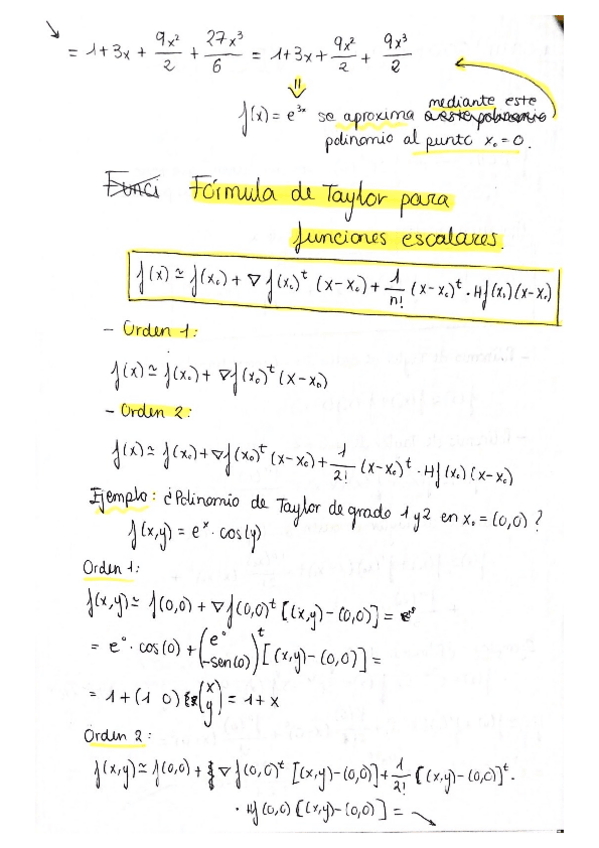 = 1+3x + 9x²/2 + 27x³/6 = 1+3x + 9x²/2 + 9x³/2
⇓
f(x) = e^3x se aproxima mediante este
polinomio al punto x₀=0.
Funci Fórmula de Taylor para
funciones escalares.
f(x) ≃ f(x₀) + ∇f(x₀)^t (x-x₀) + 1/n! (x-x₀)^t · Hf(x₀)(x-x₀)
- Orden 1:
f(x) ≃ f(x₀) + ∇f(x₀)^t (x-x₀)
- Orden 2:
f(x) ≃ f(x₀) + ∇f(x₀)^t (x-x₀) + 1/2! (x-x₀)^t · Hf(x₀)(x-x₀)
Ejemplo: ¿Polinomio de Taylor de grado 1 y 2 en x₀ = (0,0)?
f(x,y) = e^x · cos(y)
Orden 1:
f(x,y) ≃ f(0,0) + ∇f(0,0)^t [(x,y)-(0,0)] =
= e^0 · cos(0) + (e^0 -sen(0))^t [(x,y)-(0,0)] =
= 1 + (1 0) (x y) = 1 + x
Orden 2:
f(x,y) ≃ f(0,0) + ∇f(0,0)^t [(x,y)-(0,0)] + 1/2! [(x,y)-(0,0)]^t ·
· Hf(0,0) [(x,y)-(0,0)] =